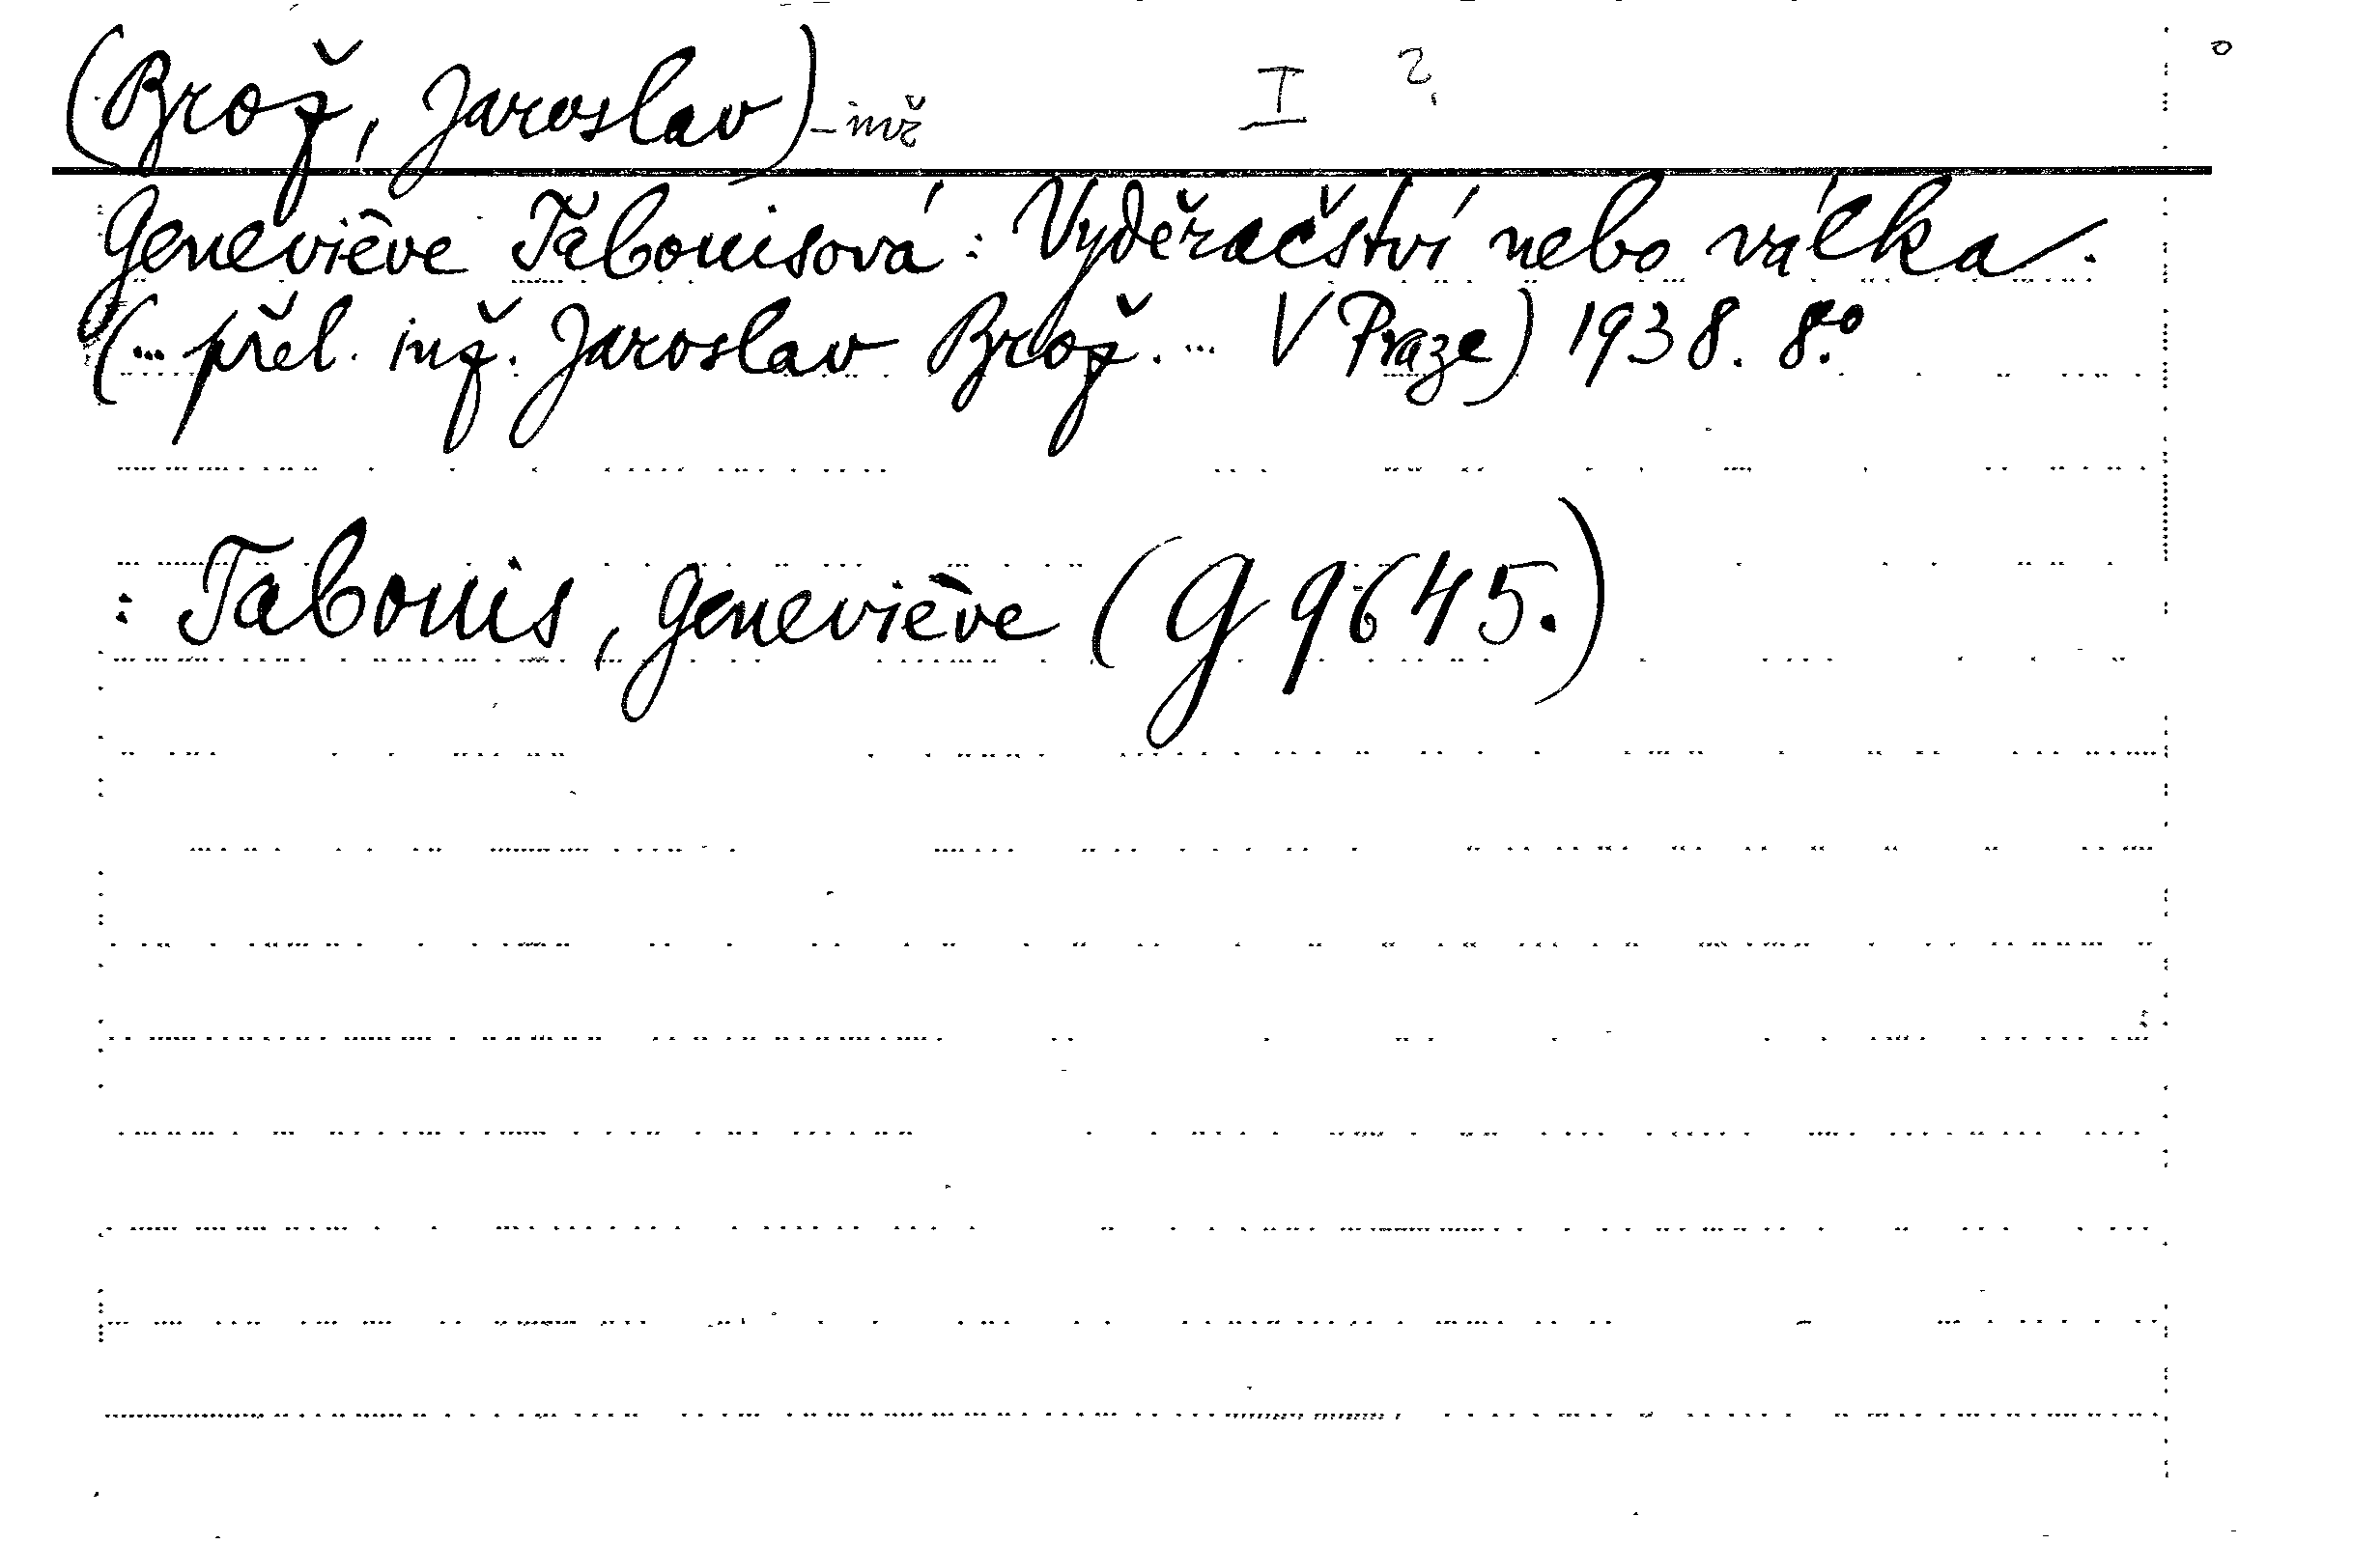 (Brož, Jaroslav) - inž I ?
Geneviève Tabouisová: Vyděračství nebo válka.
(... přel. inž. Jaroslav Brož. ... V Praze) 1938. 8.°
: Tabouis, Geneviève (G 9645.)